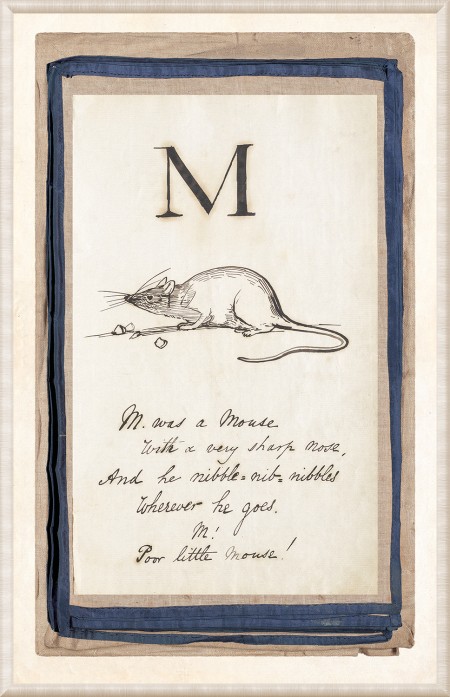 M
M. was a Mouse
With a very sharp nose,
And he nibble=nib=nibbles
Wherever he goes.
M!
Poor little Mouse!